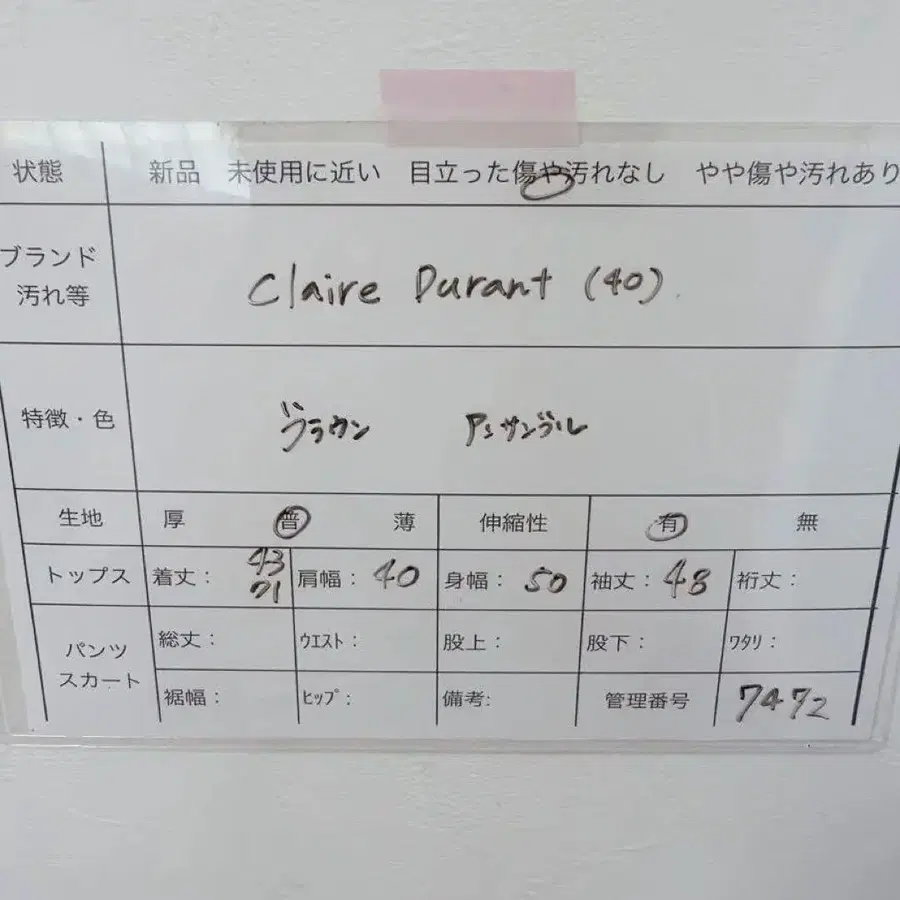 状態 新品 未使用に近い 目立った傷や汚れなし やや傷や汚れあり
ブランド
汚れ等
Claire Durant (40)
特徴・色 ブラウン アンサンブル
生地 厚 普 薄 伸縮性 有 無
トップス 着丈: 43 71 肩幅: 40 身幅: 50 袖丈: 48 裄丈:
パンツ
スカート
総丈: ウエスト: 股上: 股下: ワタリ:
裾幅: ヒップ: 備考: 管理番号 7472